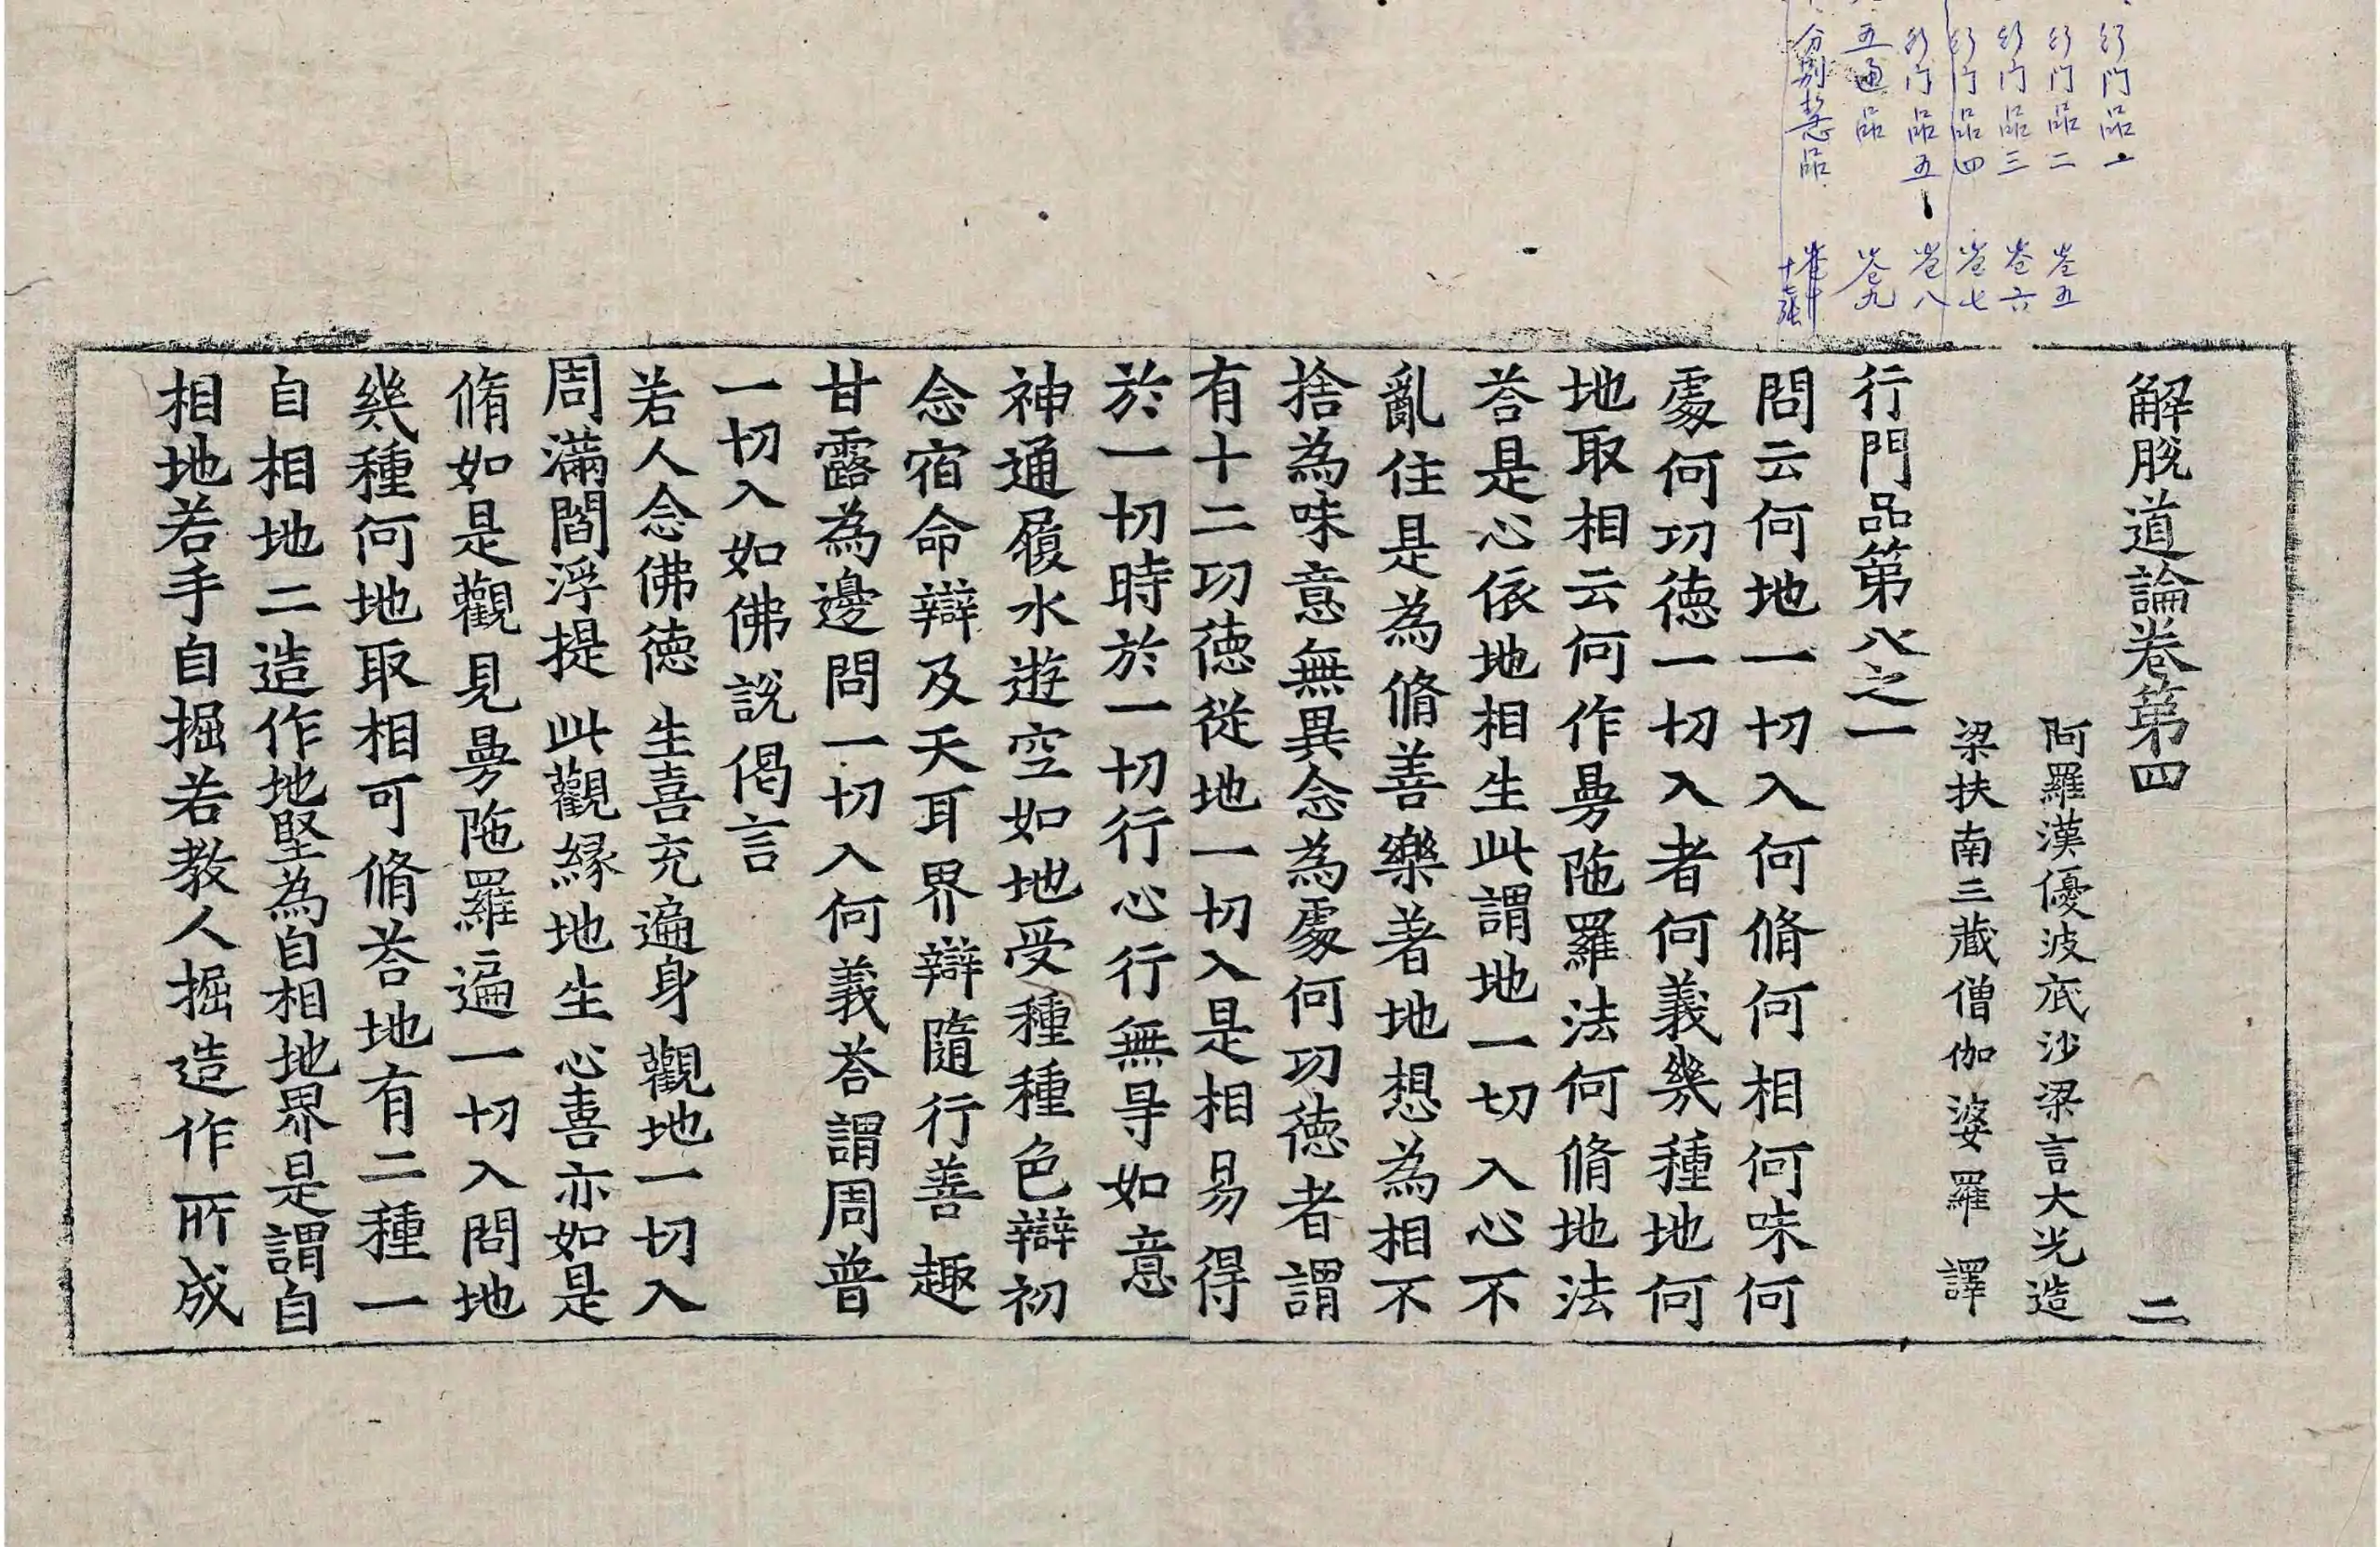 行门品一
行门品二 卷五
行门品三 卷六
行门品四 卷七
行门品五 卷八
五通品 卷九
分别慧品
解脫道論卷第四 二
阿羅漢優波底沙梁言大光造
梁扶南三藏僧伽婆羅 譯
行門品第八之一
問云何地一切入何脩何相何味何
處何功德一切入者何義幾種地何
地取相云何作曼陁羅法何脩地法
荅是心依地相生此謂地一切入心不
亂住是為脩善樂著地想為相不
捨為味意無異念為處何功德者謂
有十二功德從地一切入是相易得
於一切時於一切行心行無㝵如意
神通履水遊空如地受種種色辯初
念宿命辯及天耳界辯隨行善趣
甘露為邊問一切入何義荅謂周普
一切入如佛說偈言
若人念佛德 生喜充遍身 觀地一切入
周滿閻浮提 此觀緣地生 心喜亦如是
脩如是觀見曼陁羅遍一切入問地
幾種何地取相可脩荅地有二種一
自相地二造作地堅為自相地界是謂自
相地若手自掘若教人掘造作所成